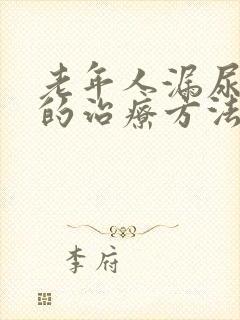 老年人漏尿
的治疗方法
李府